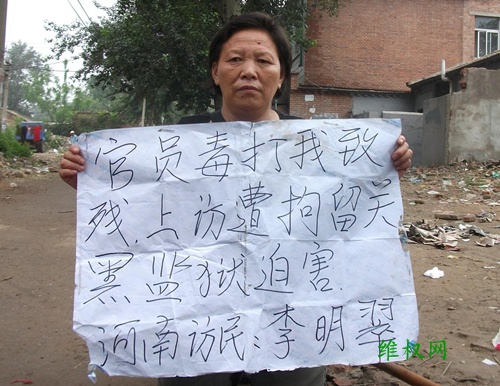 官员毒打我致
残.上访遭拘留关
黑监狱迫害.
河南访民:李明翠
维权网